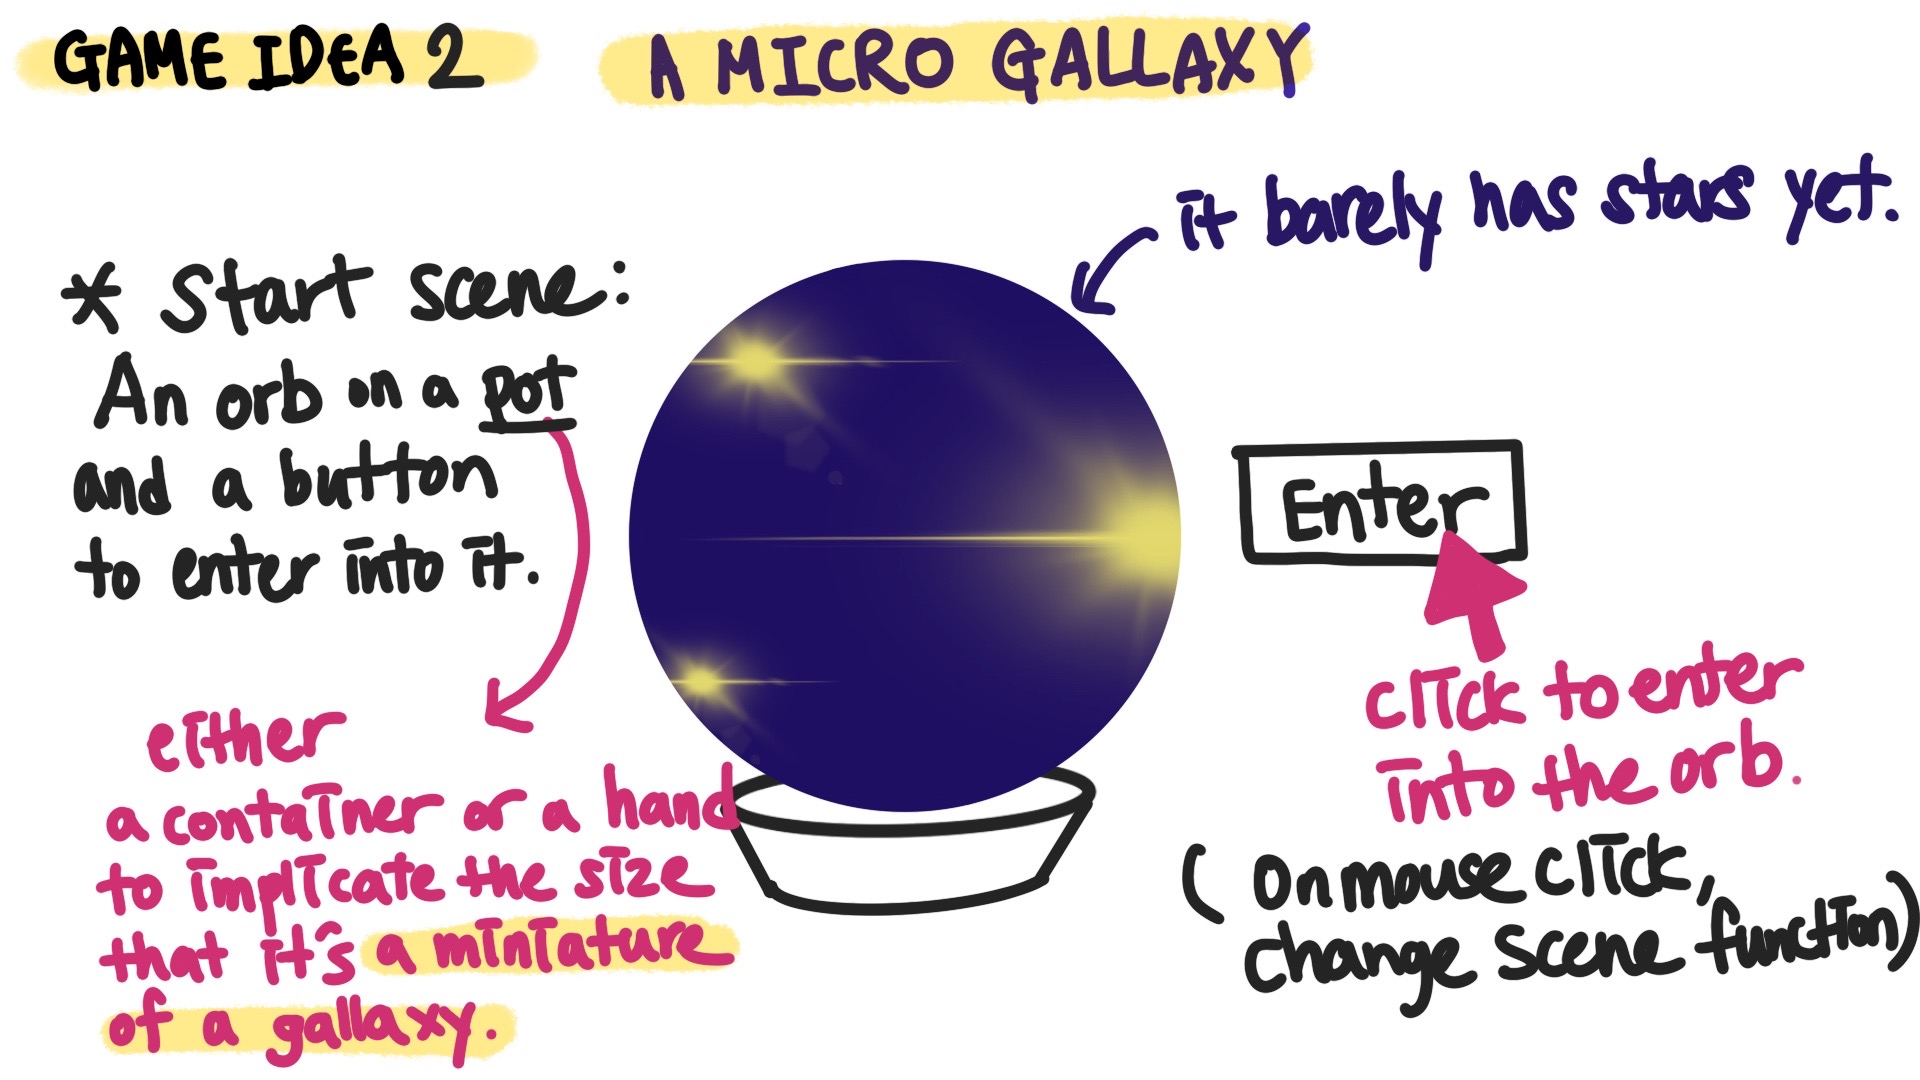 GAME IDEA 2
A MICRO GALLAXY
it barely has stars yet.
* Start scene:
An orb on a pot
and a button
to enter into it.
Enter
either
a container or a hand
to implicate the size
that it's a miniature
of a gallaxy.
click to enter
into the orb.
(On mouse click,
change scene function)